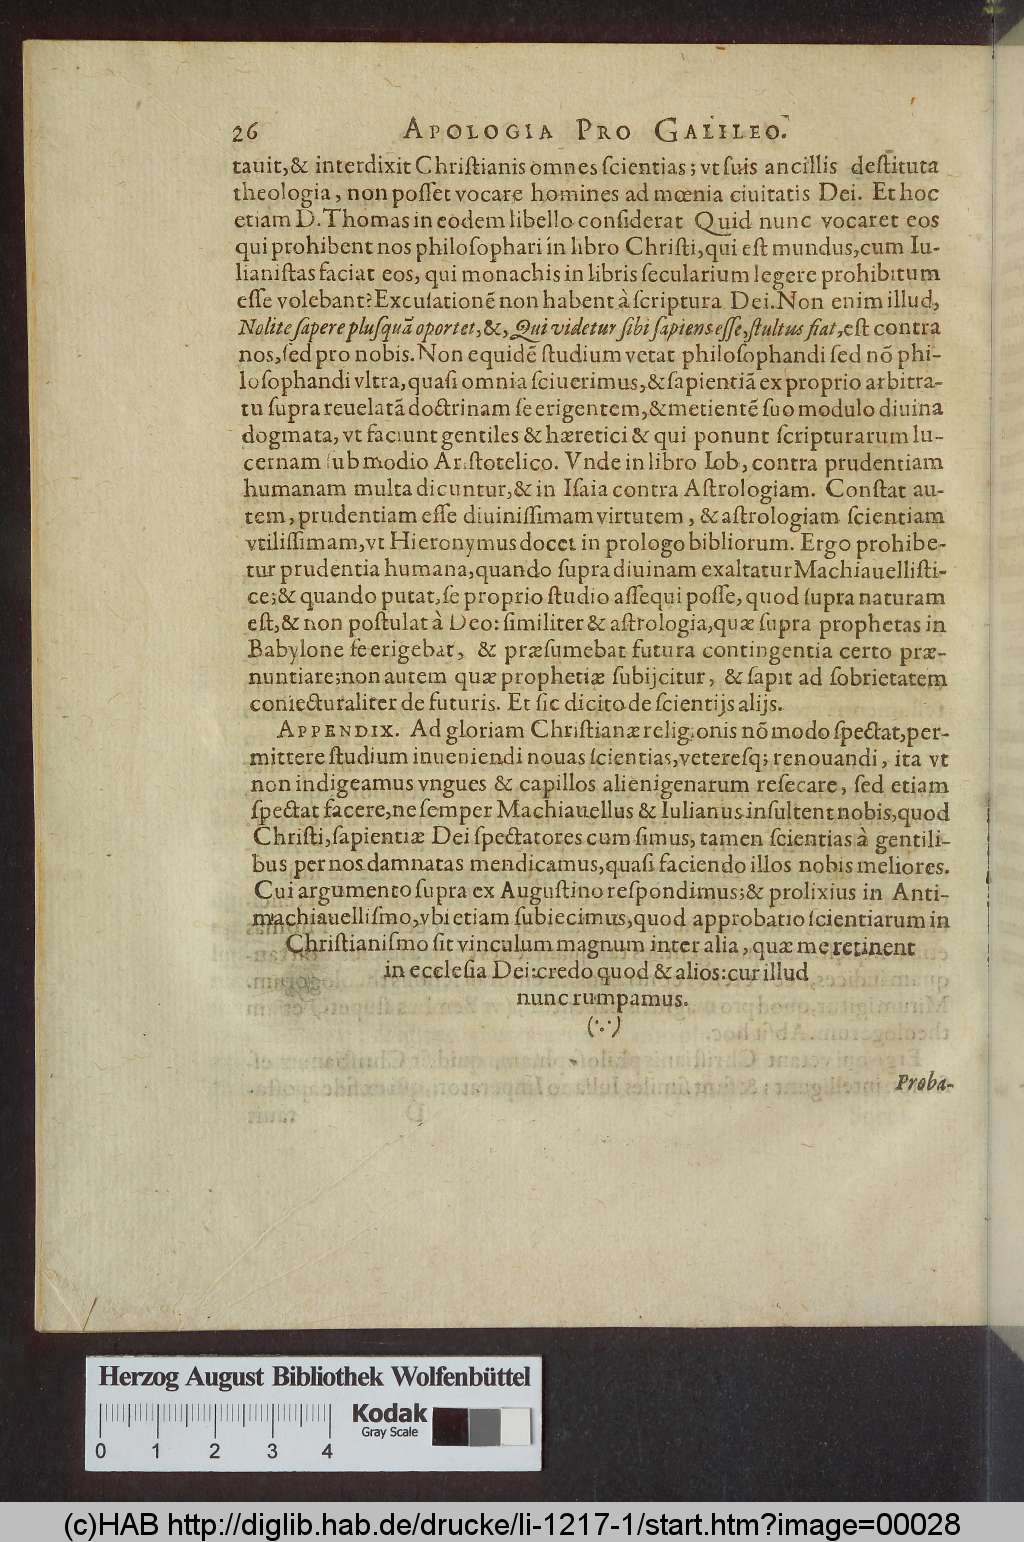 26 APOLOGIA PRO GALILEO.
tauit,& interdixit Chriſtianis omnes ſcientias; vt ſuis ancillis deſtituta
theologia, non poſſet vocare homines ad mœnia ciuitatis Dei. Et hoc
etiam D. Thomas in eodem libello conſiderat Quid nunc vocaret eos
qui prohibent nos philoſophari in libro Chriſti, qui eſt mundus, cum Iu-
lianiſtas faciat eos, qui monachis in libris ſecularium legere prohibitum
eſſe volebant? Excuſationē non habent à ſcriptura Dei. Non enim illud,
Nolite ſapere pluſquā oportet, &, Qui videtur ſibi ſapiens eſſe, ſtultus fiat, eſt contra
nos, ſed pro nobis. Non equidē ſtudium vetat philoſophandi ſed nō phi-
loſophandi vltra, quaſi omnia ſciuerimus, & ſapientiā ex proprio arbitra-
tu ſupra reuelatā doctrinam ſe erigentem, & metientē ſuo modulo diuina
dogmata, vt faciunt gentiles & hæretici & qui ponunt ſcripturarum lu-
cernam ſub modio Ariſtotelico. Vnde in libro Iob, contra prudentiam
humanam multa dicuntur, & in Iſaia contra Aſtrologiam. Conſtat au-
tem, prudentiam eſſe diuiniſſimam virtutem, & aſtrologiam ſcientiam
vtiliſſimam, vt Hieronymus docet in prologo bibliorum. Ergo prohibe-
tur prudentia humana, quando ſupra diuinam exaltatur Machiauelliſti-
ce; & quando putat, ſe proprio ſtudio aſſequi poſſe, quod ſupra naturam
eſt, & non poſtulat à Deo: ſimiliter & aſtrologia, quæ ſupra prophetas in
Babylone ſe erigebat, & præſumebat futura contingentia certo præ-
nuntiare; non autem quæ prophetiæ ſubijcitur, & ſapit ad ſobrietatem
coniecturaliter de futuris. Et ſic dicito de ſcientijs alijs.
APPENDIX. Ad gloriam Chriſtianæ religionis nō modo ſpectat, per-
mittere ſtudium inueniendi nouas ſcientias, vetereſq; renouandi, ita vt
non indigeamus vngues & capillos alienigenarum reſecare, ſed etiam
ſpectat facere, ne ſemper Machiauellus & Iulianus inſultent nobis, quod
Chriſti, ſapientiæ Dei ſpectatores cum ſimus, tamen ſcientias à gentili-
bus per nos damnatas mendicamus, quaſi faciendo illos nobis meliores.
Cui argumento ſupra ex Auguſtino reſpondimus; & prolixius in Anti-
machiauelliſmo, vbi etiam ſubiecimus, quod approbatio ſcientiarum in
Chriſtianiſmo ſit vinculum magnum inter alia, quæ me retinent
in eccleſia Dei: credo quod & alios: cur illud
nunc rumpamus.
(∵)
Proba-
Herzog August Bibliothek Wolfenbüttel
0 1 2 3 4
Kodak
Gray Scale
(c)HAB http://diglib.hab.de/drucke/li-1217-1/start.htm?image=00028